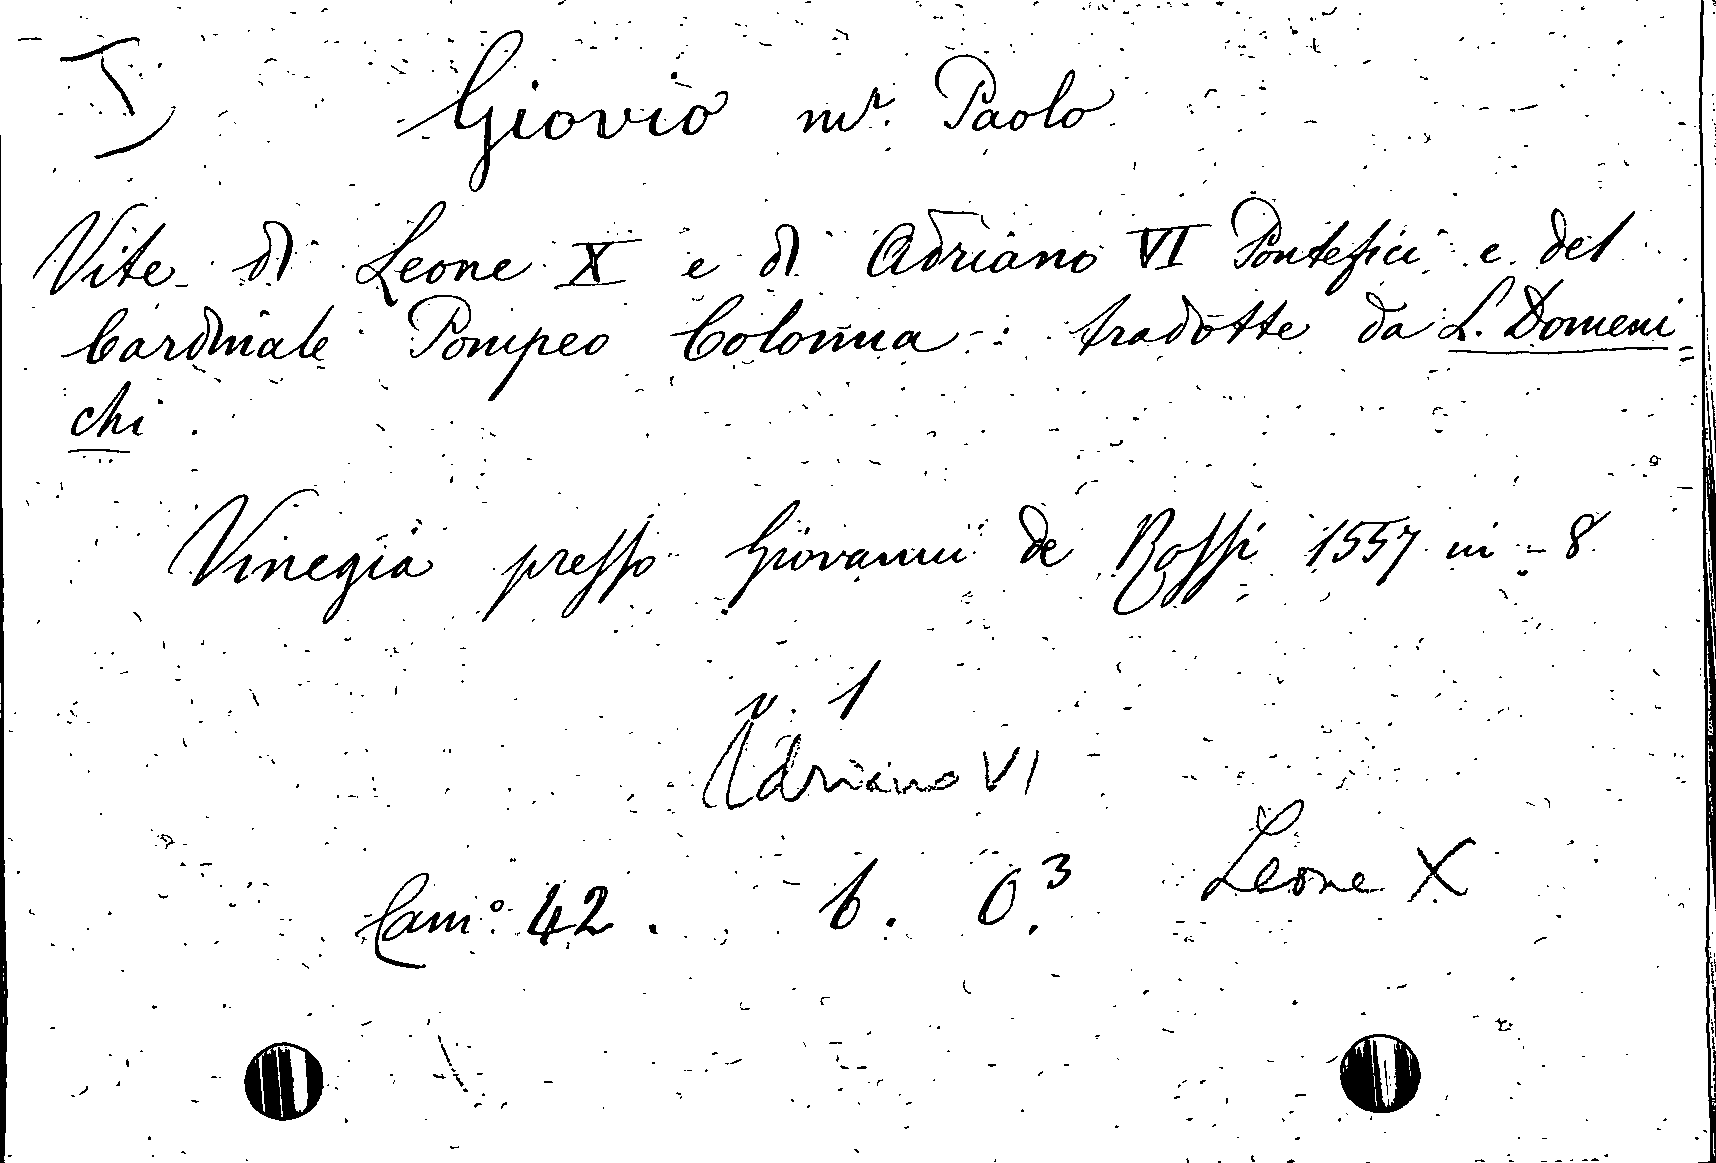 Giovio mr. Paolo
Vite di Leone X e di Adriano VI Pontefici e del
Cardinale Pompeo Colonna : tradotte da L. Domeni=
chi.
Vinegia presso Giovanni de Rossi 1557 in-8
v. 1
Adriano VI
Leone X
Cam° 42. b. 0.3